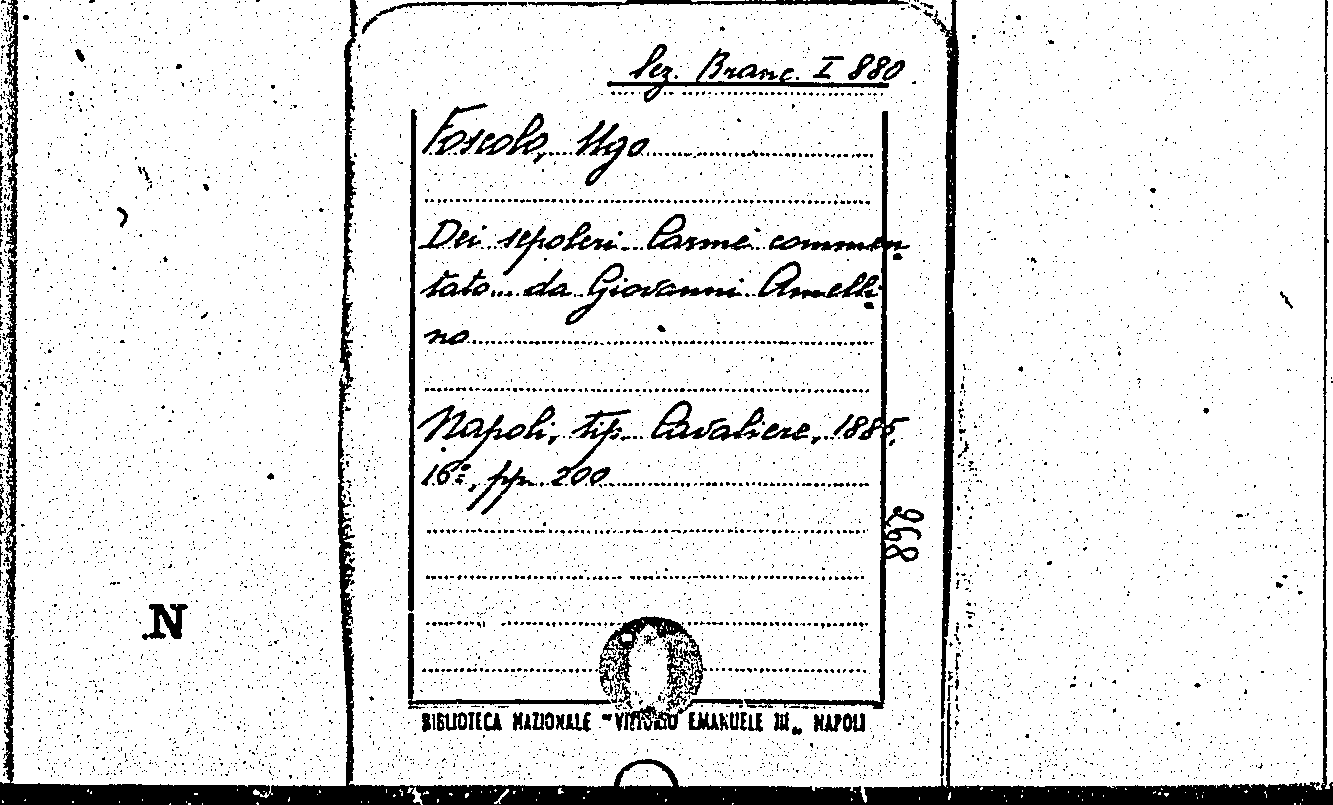 Sez. Branc. I 880
Foscolo, Ugo
Dei sepolcri. Carme commen-
tato da Giovanni Amelli-
no
Napoli, tip. Cavaliere, 1885,
16º, pp. 200
268
N
BIBLIOTECA NAZIONALE "VITTORIO EMANUELE III" NAPOLI